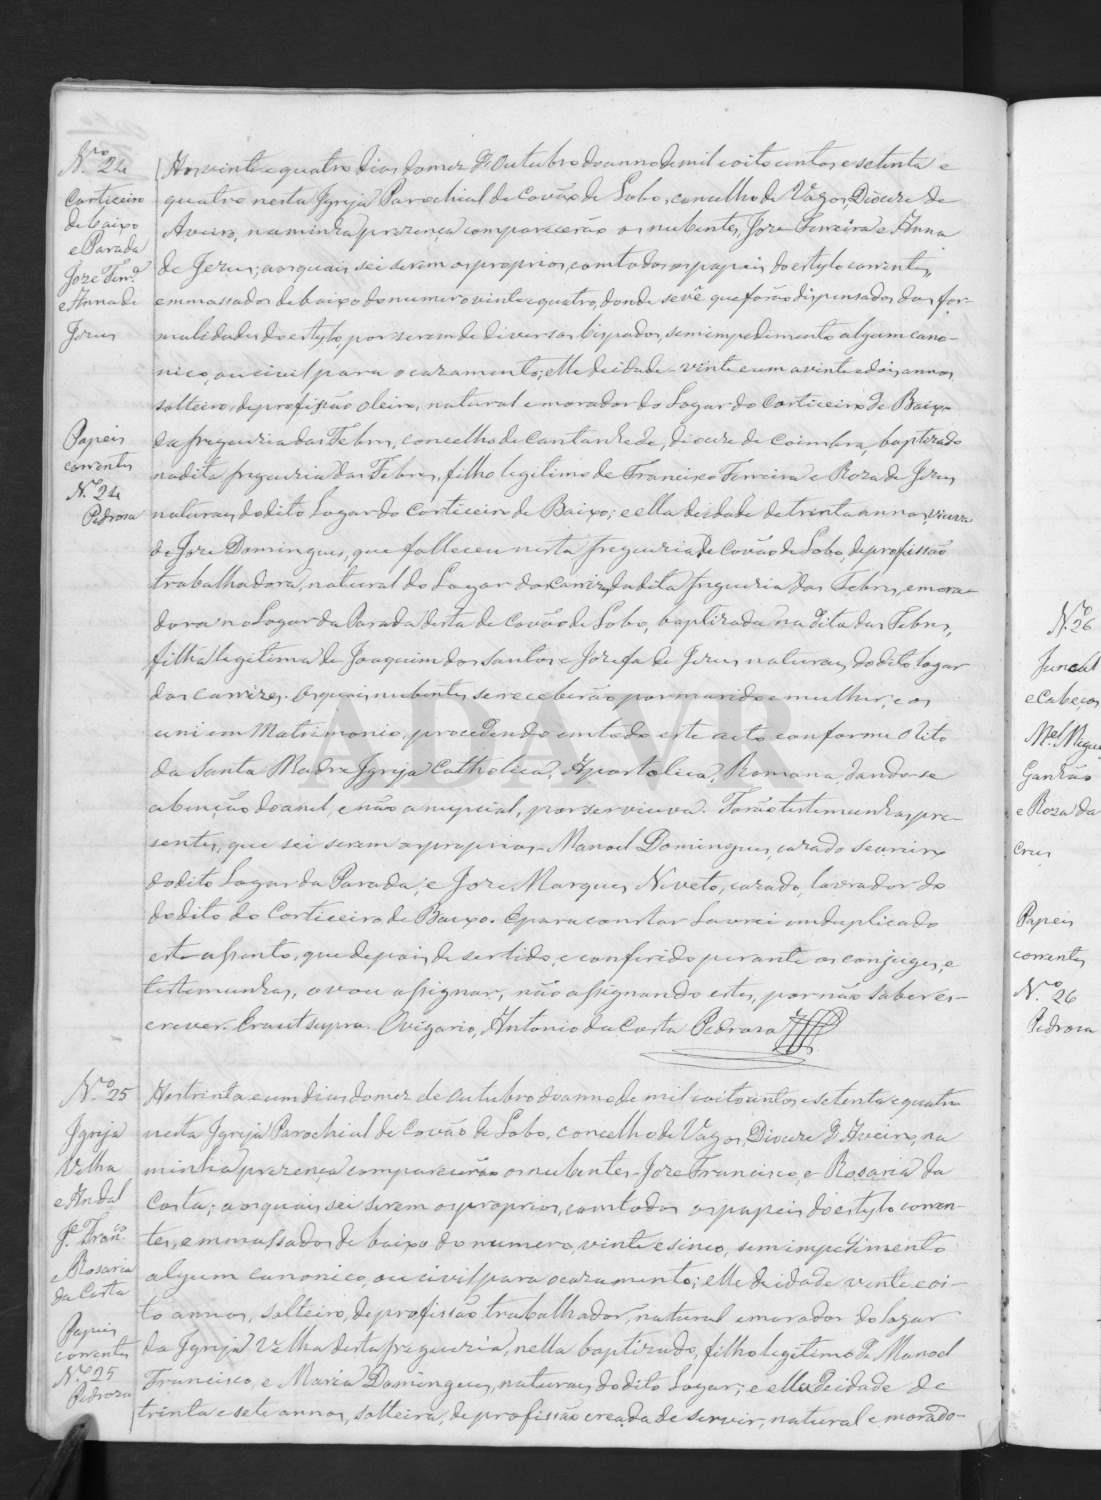 N.º 24
Corticeiro
de baixo
e Parada
Joze Ferr.ª
e Anna de
Jezus
Papeis
correntes
N.º 24
Pedroza
Aos vinte e quatro dias do mez de Outubro do anno de mil e oito centos e setenta e
quatro nesta Igreja Parochial de Covão de Lobo, concelho de Vagos, Diocere de
Aveiro, na minha prezença comparecerão os nubentes, Joze Ferreira e Anna
de Jezus; aos quais sei serem os proprios, com todos os papeis do estylo correntes,
emmassados de baixo do numero vinte e quatro, donde se vê que forão dispensados das for-
malidades do estylo, por serem de diversos bispados, sem impedimento algum cano-
nico, ou civil para o cazamento; elle de idade - vinte e um a vinte e dois annos
solteiro, de profissão oleiro, natural e morador do Logar do Corticeiro de Baixo
da freguezia das Febres, concelho de Cantanhede, diocere de Coimbra, baptizado
na dita freguezia das Febres, filho legitimo de Francisco Ferreira e Roza de Jezus
naturaes do dito Logar do Corticeiro de Baixo; e ella de idade de trinta annos, viuva
de Joze Domingues, que falleceu nesta freguezia de Covão de Lobo, de profissão
trabalhadora, natural do Logar dos Carrizes da dita freguezia das Febres, e mora-
dora no Logar da Parada desta de Covão de Lobo, baptizada na dita das Febres,
filha legitima de Joaquim dos Santos e Jozefa de Jezus naturaes do dito logar
dos Carrizes. Os quaes nubentes se receberão por marido e mulher, e os
uni em Matrimonio, procedendo em todo este acto conforme o rito
da Santa Madre Igreja Catholica, Apostolica, Romana, dando-se
a benção do anel, e não a nupcial, por ser viuva. Forão testemunhas pre-
sentes, que sei serem os proprios - Manoel Domingues, cazado seareiro
do dito Logar da Parada; e Joze Marques Neveto, cazado, lavrador do
do dito do Corticeiro de Baixo. E para constar lavrei em duplicado
este assento, que depois de ser lido, e conferido perante os conjuges, e
testemunhas, o vou assignar, não assignando estes, por não saber es-
crever. Era ut supra. O vigario, Antonio da Costa Pedroza
N.º 25
Igreja
Velha
e Andal
J.e Fran.co
e Rosaria
da Costa
Papeis
correntes
N.º 25
Pedroza
Aos trinta e um dias do mez de Outubro do anno de mil e oito centos e setenta e quatro
nesta Igreja Parochial de Covão de Lobo, concelho de Vagos, Diocere d'Aveiro, na
minha prezença comparecerão os nubentes - Joze Francisco, e Rosaria da
Costa; aos quais sei serem os proprios, com todos os papeis do estylo corren-
tes, emmassados de baixo do numero, vinte e sinco, sem impedimento
algum canonico, ou civil para o cazamento; elle de idade vinte e oi-
to annos, solteiro, de profissão trabalhador, natural e morador do logar
da Igreja Velha desta freguezia, nella baptizado, filho legitimo de Manoel
Francisco, e Maria Domingues, naturaes do dito Logar; e ella de idade de
trinta e sete annos, solteira, de profissão creada de servir, natural e morado-
N.º 26
Juncal
e Cabeços
M.el Migue
Ganhão
e Roza da
Crus
Papeis
correntes
N.º 26
Pedroza
ADAVR